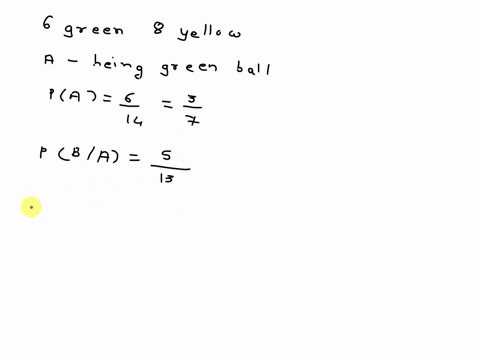 6 green 8 yellow
A - being green ball
P(A) = 6/14 = 3/7
P(B/A) = 5/13